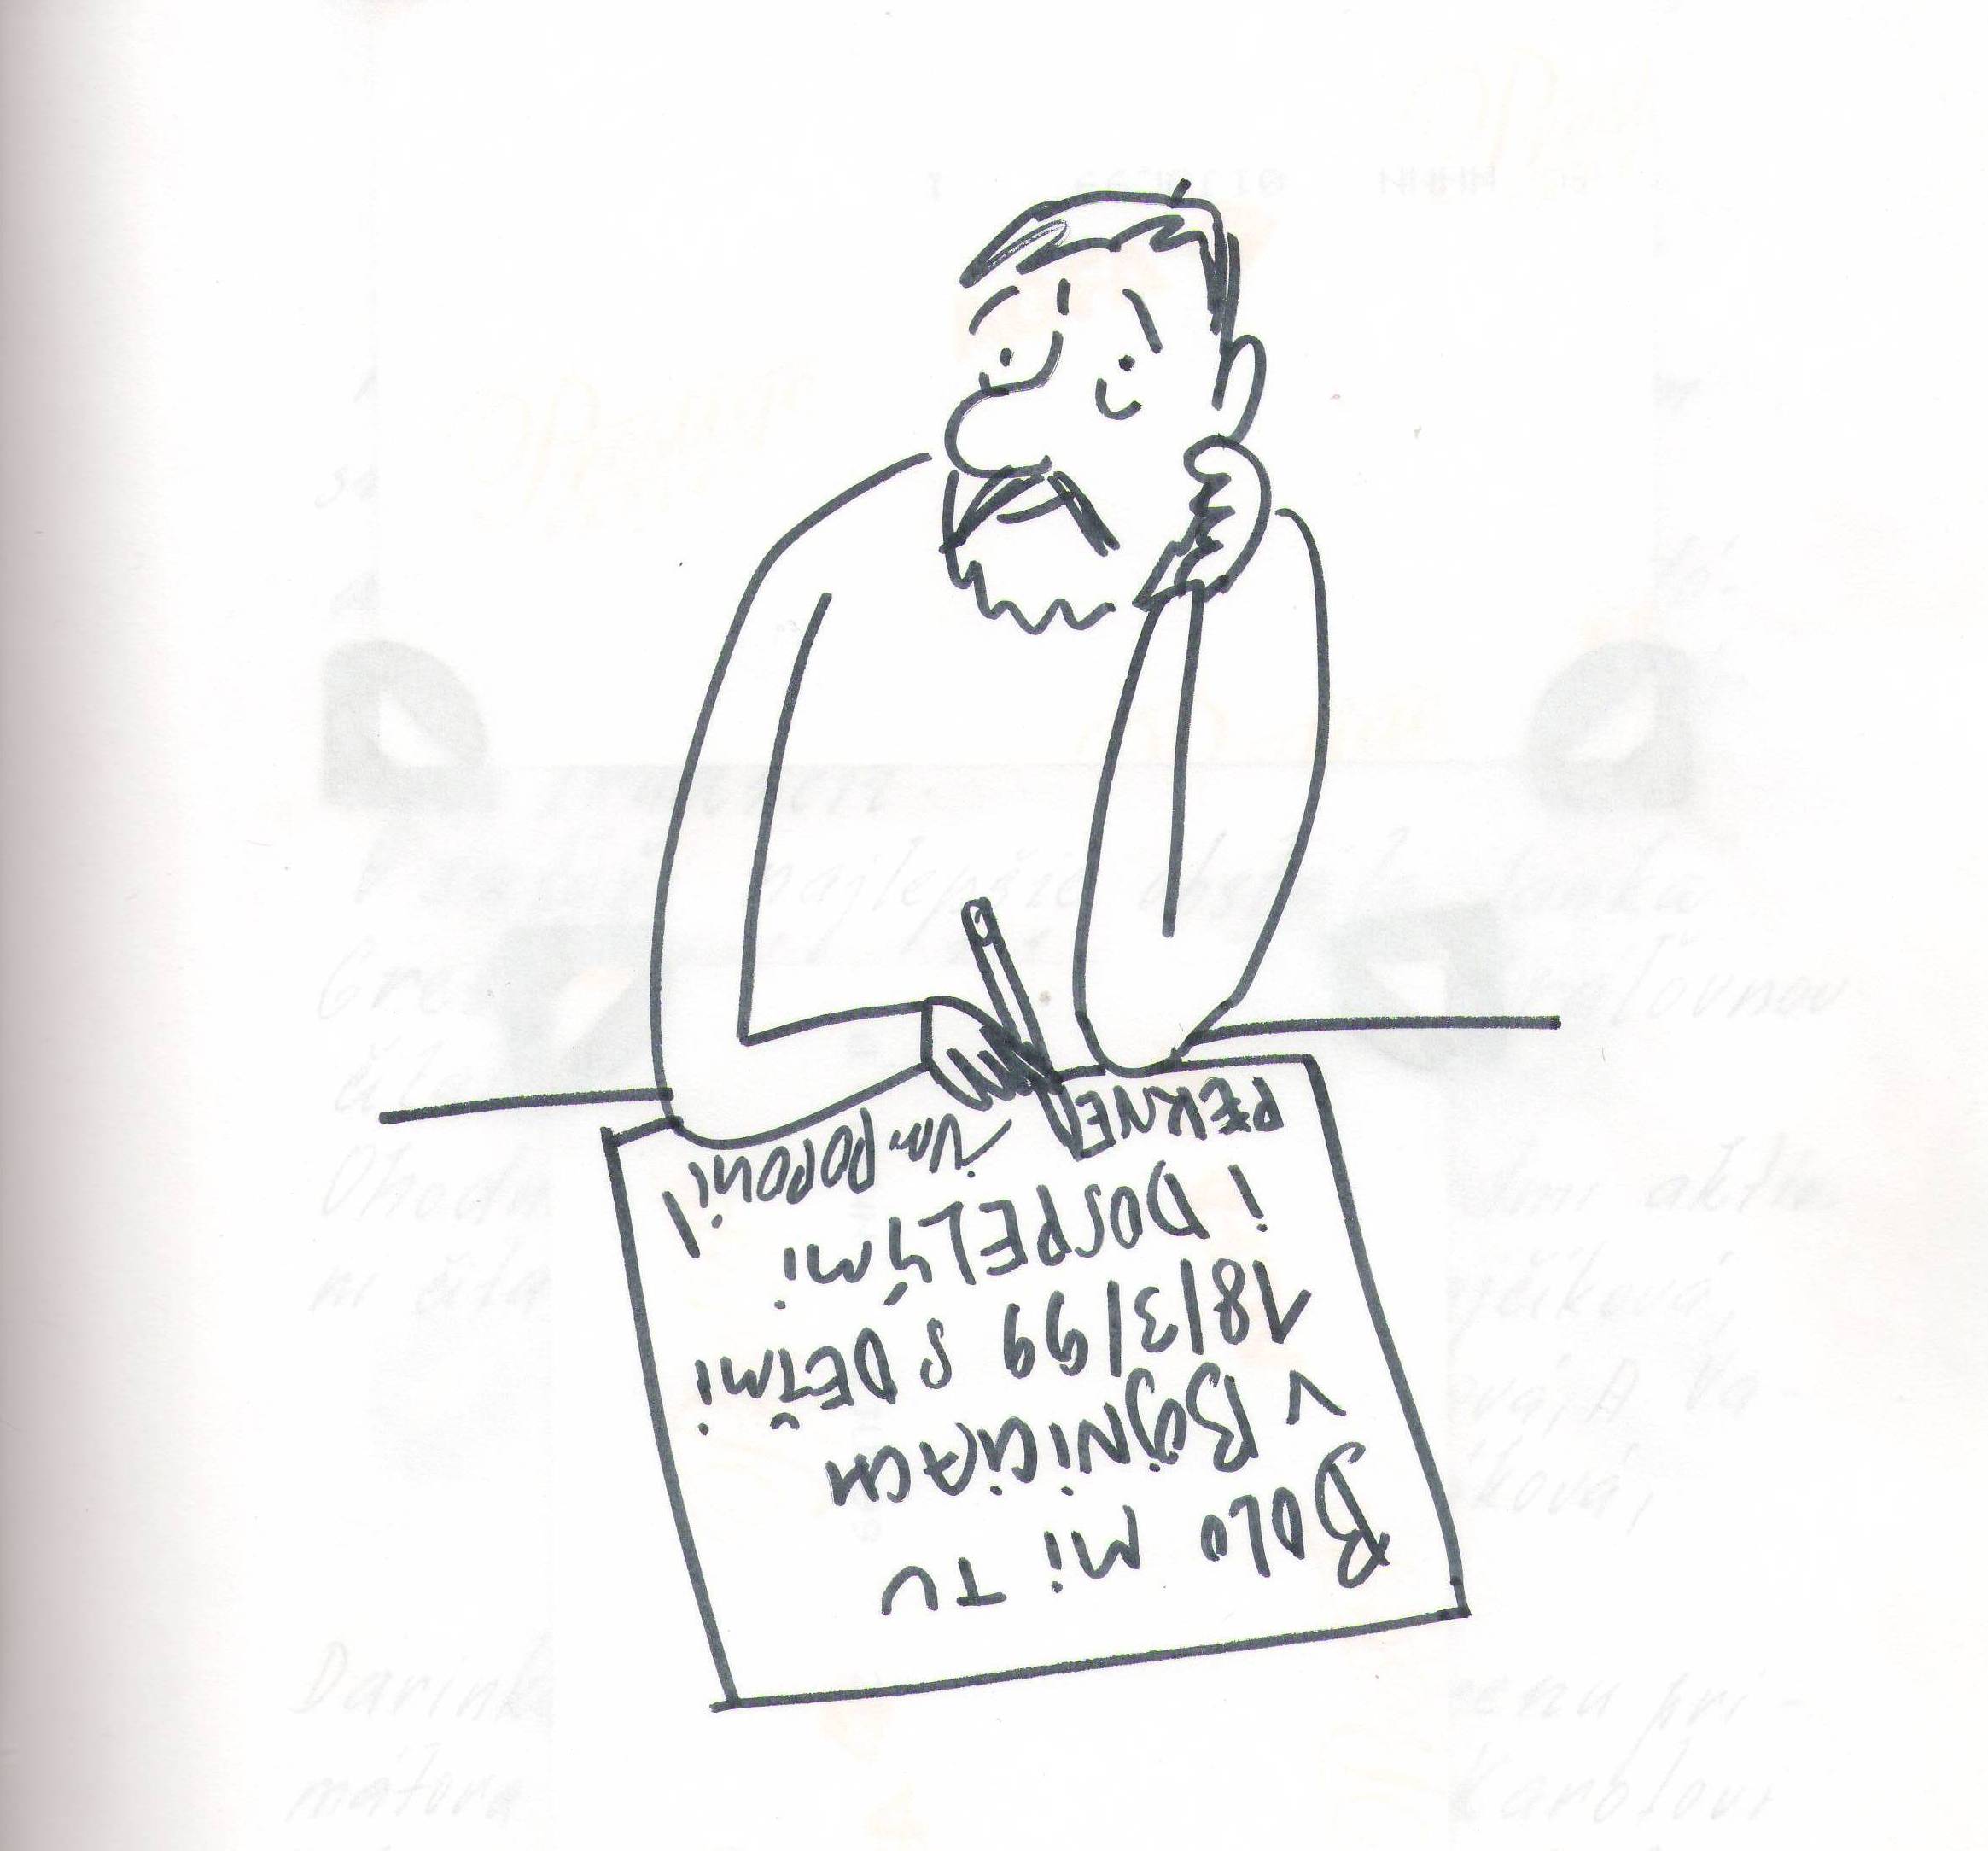 BOLO MI TU
V BOJNICIACH
18/3/99 S DEŤMI
I DOSPELÝMI
PEKNE
Ivan POPOVIČ